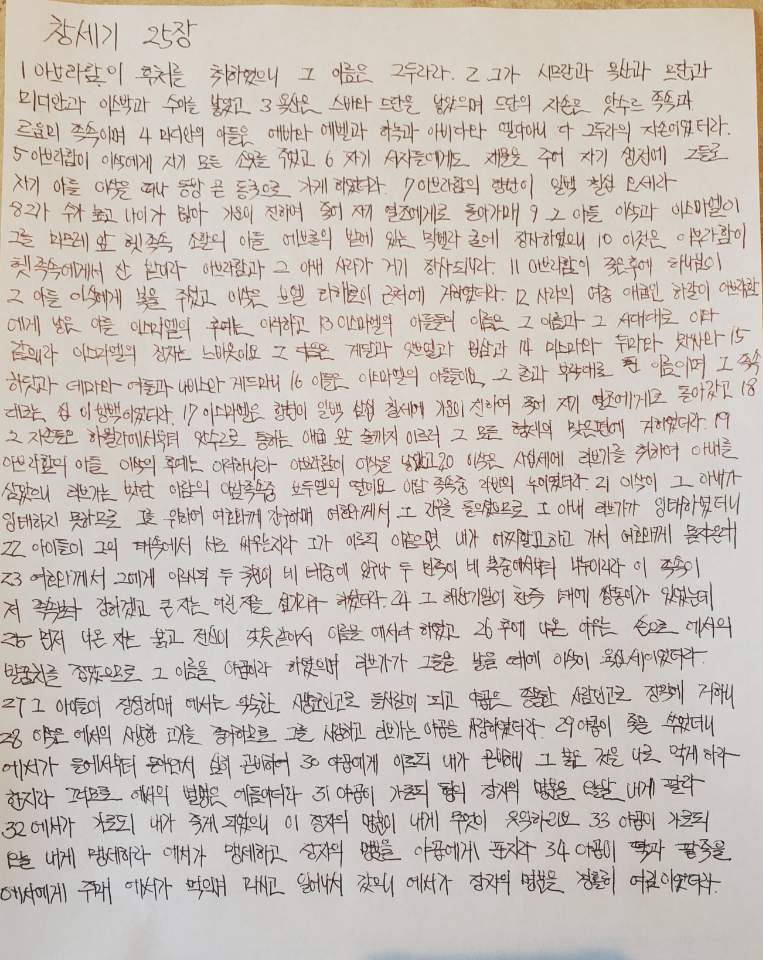 창세기 25장
1 아브라함이 후처를 취하였으니 그 이름은 그두라라. 2 그가 시므란과 욕산과 므단과
미디안과 이스박과 수아를 낳았고 3 욕산은 스바와 드단을 낳았으며 드단의 자손은 앗수르 족속과
르움미 족속이며 4 미디안의 아들은 에바와 에벨과 하녹과 아비다와 엘다아니 다 그두라의 자손이었더라.
5 아브라함이 이삭에게 자기 모든 소유를 주었고 6 자기 서자들에게도 재물을 주어 자기 생전에 그들로
자기 아들 이삭을 떠나 동방 곧 동국으로 가게 하였더라. 7 아브라함의 향년이 일백 칠십 오세라
8 그가 수가 높고 나이가 많아 기운이 진하여 죽어 자기 열조에게로 돌아가매 9 그 아들 이삭과 이스마엘이
그를 마므레 앞 헷 족속 소할의 아들 에브론의 밭에 있는 막벨라 굴에 장사하였으니 10 이것은 아브라함이
헷 족속에게서 산 밭이라 아브라함과 그 아내 사라가 거기 장사되니라. 11 아브라함이 죽은후에 하나님이
그 아들 이삭에게 복을 주셨고 이삭은 브엘 라해로이 근처에 거하였더라. 12 사라의 여종 애굽인 하갈이 아브라함
에게 낳은 아들 이스마엘의 후예는 이러하고 13 이스마엘의 아들들의 이름은 그 이름과 그 세대대로 이와
같으니라 이스마엘의 장자는 느바욧이요 그 다음은 게달과 앗브엘과 밉삼과 14 미스마와 두마와 맛사와 15
하닷과 데마와 여둘과 나비스와 게드마니 16 이들은 이스마엘의 아들들이요 그 촌과 부락대로 된 이름이며 그 족속
대로는 십 이 방백이었더라. 17 이스마엘은 향년이 일백 삼십 칠세에 기운이 진하여 죽어 자기 열조에게로 돌아갔고 18
그 자손들은 하윌라에서부터 앗수르로 통하는 애굽 앞 술까지 이르러 그 모든 형제의 맞은편에 거하였더라. 19
아브라함의 아들 이삭의 후예는 이러하니라 아브라함이 이삭을 낳았고 20 이삭은 사십세에 리브가를 취하여 아내를
삼았으니 리브가는 밧단 아람의 아람족속중 브두엘의 딸이요 아람 족속중 라반의 누이였더라. 21 이삭이 그 아내가
잉태하지 못하므로 그를 위하여 여호와께 간구하매 여호와께서 그 간구를 들으셨으므로 그 아내 리브가가 잉태하였더니
22 아이들이 그의 태속에서 서로 싸우는지라 그가 이르되 이같으면 내가 어찌할고하고 가서 여호와께 묻자온대
23 여호와께서 그에게 이르시되 두 국민이 네 태중에 있구나 두 민족이 네 복중에서부터 나누이리라 이 족속이
저 족속보다 강하겠고 큰 자는 어린 자를 섬기리라 하셨더라. 24 그 해산기일이 찬즉 태에 쌍둥이가 있었는데
25 먼저 나온 자는 붉고 전신이 갖옷같아서 이름을 에서라 하였고 26 후에 나온 아우는 손으로 에서의
발꿈치를 잡았으므로 그 이름을 야곱이라 하였으며 리브가가 그들을 낳을 때에 이삭이 육십세이었더라.
27 그 아이들이 장성하매 에서는 익숙한 사냥꾼인고로 들사람이 되고 야곱은 종용한 사람인고로 장막에 거하니
28 이삭은 에서의 사냥한 고기를 좋아하므로 그를 사랑하고 리브가는 야곱을 사랑하였더라. 29 야곱이 죽을 쑤었더니
에서가 들에서부터 돌아와서 심히 곤비하여 30 야곱에게 이르되 내가 곤비하니 그 붉은 것을 나로 먹게 하라
한지라 그러므로 에서의 별명은 에돔이더라 31 야곱이 가로되 형의 장자의 명분을 오늘날 내게 팔라
32 에서가 가로되 내가 죽게 되었으니 이 장자의 명분이 내게 무엇이 유익하리요 33 야곱이 가로되
오늘 내게 맹세하라 에서가 맹세하고 장자의 명분을 야곱에게 판지라 34 야곱이 떡과 팥죽을
에서에게 주매 에서가 먹으며 마시고 일어나서 갔으니 에서가 장자의 명분을 경홀히 여김이었더라.